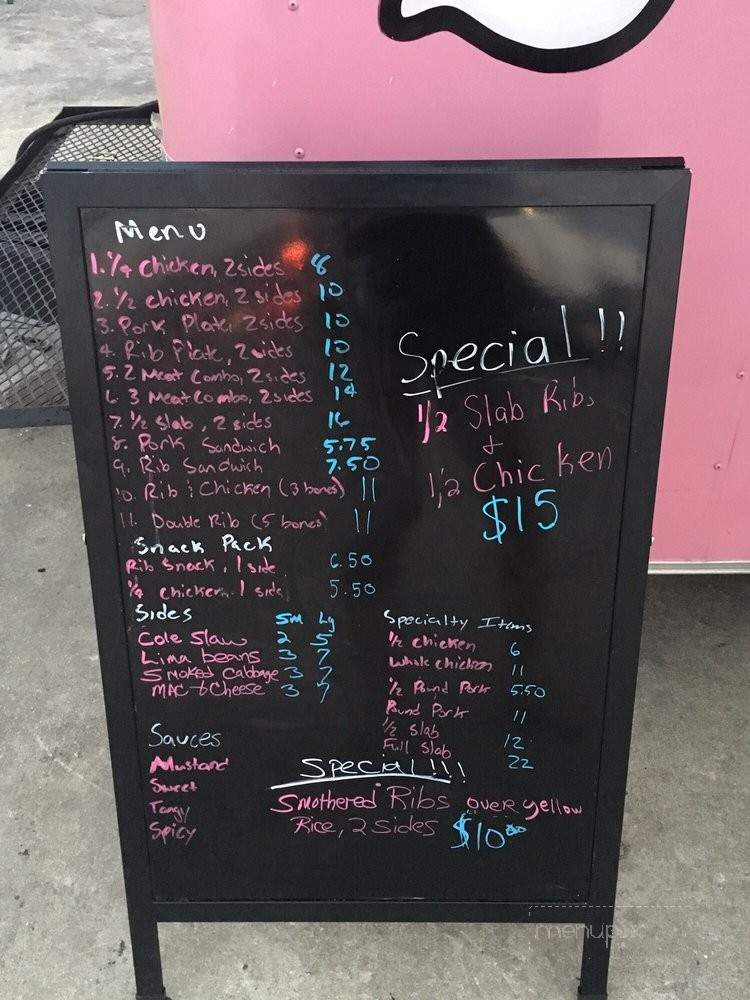 Menu
1. 1/4 Chicken, 2 sides 8
2. 1/2 chicken, 2 sides 10
3. Pork Plate, 2 sides 10
4. Rib Plate, 2 sides 10
5. 2 Meat Combo, 2 sides 12
6. 3 Meat combo, 2 sides 14
7. 1/2 Slab, 2 sides 16
8. Pork Sandwich 5.75
9. Rib Sandwich 7.50
10. Rib & Chicken (3 bones) 11
11. Double Rib (5 bones) 11
Snack Pack
Rib Snack, 1 side 6.50
1/4 chicken, 1 side 5.50
Sides Sm Lg
Cole Slaw 2 5
Lima beans 3 7
Smoked Cabbage 3 7
MAC & Cheese 3 7
Sauces
Mustard
Sweet
Tangy
Spicy
Special!!
1/2 Slab Ribs
&
1/2 Chicken
$15
Specialty Items
1/2 chicken 6
Whole chicken 11
1/2 Pound Pork 5.50
Pound Pork 11
1/2 Slab 12
Full Slab 22
Special!!!
Smothered Ribs over yellow
Rice, 2 Sides $10.00
menupix